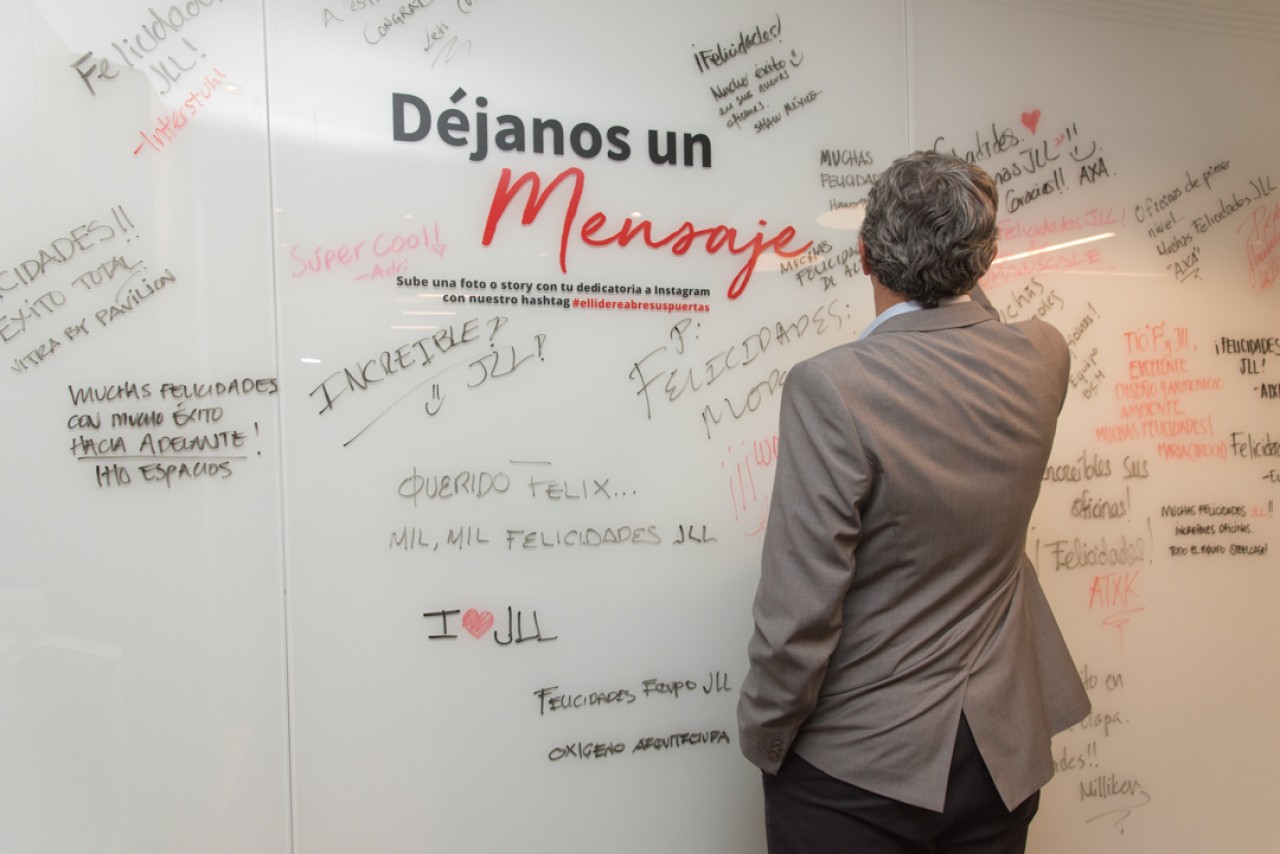 Felicidades
JLL!
-Interstuhl
A
CONGRA
Leti
¡Felicidades!
Mucho éxito
en sus nuevas
oficinas.
SHAW MÉXICO
Déjanos un
Mensaje
Sube una foto o story con tu dedicatoria a Instagram
con nuestro hashtag #ellidereabresuspuertas
Súper Cool!
-Adri
CIDADES!!
ÉXITO TOTAL
VITRA BY PAVILION
MUCHAS FELICIDADES
CON MUCHO ÉXITO
HACIA ADELANTE!
ITIO ESPACIOS
INCREIBLE?
JLL!
P:
FELICIDADES:
QUERIDO FELIX...
MIL, MIL FELICIDADES JLL
I ❤ JLL
FELICIDADES EQUIPO JLL
OXIGENO ARQUITECTURA
MUCHAS
FELICIDAD
MUCHAS
FELICIDAD
DE
JLL!!
Gracias!! AXA.
Felicidades JLL!
Oficinas de primer
nivel...
Muchas Felicidades JLL
"AXA"
Equipo
TIO "P" y JLL,
EXCELENTE
DISEÑO Y ARMONICO
AMBIENTE
MUCHAS FELICIDADES!
¡FELICIDADES
JLL!
Felicidad
Increíbles sus
oficinas!
¡Felicidades!
ATXK
MUCHAS FELICIDADES JLL!!
INCREÍBLES OFICINAS.
TODO EL EQUIPO STEELCASE!
en
etapa.
ades!!
Milliken